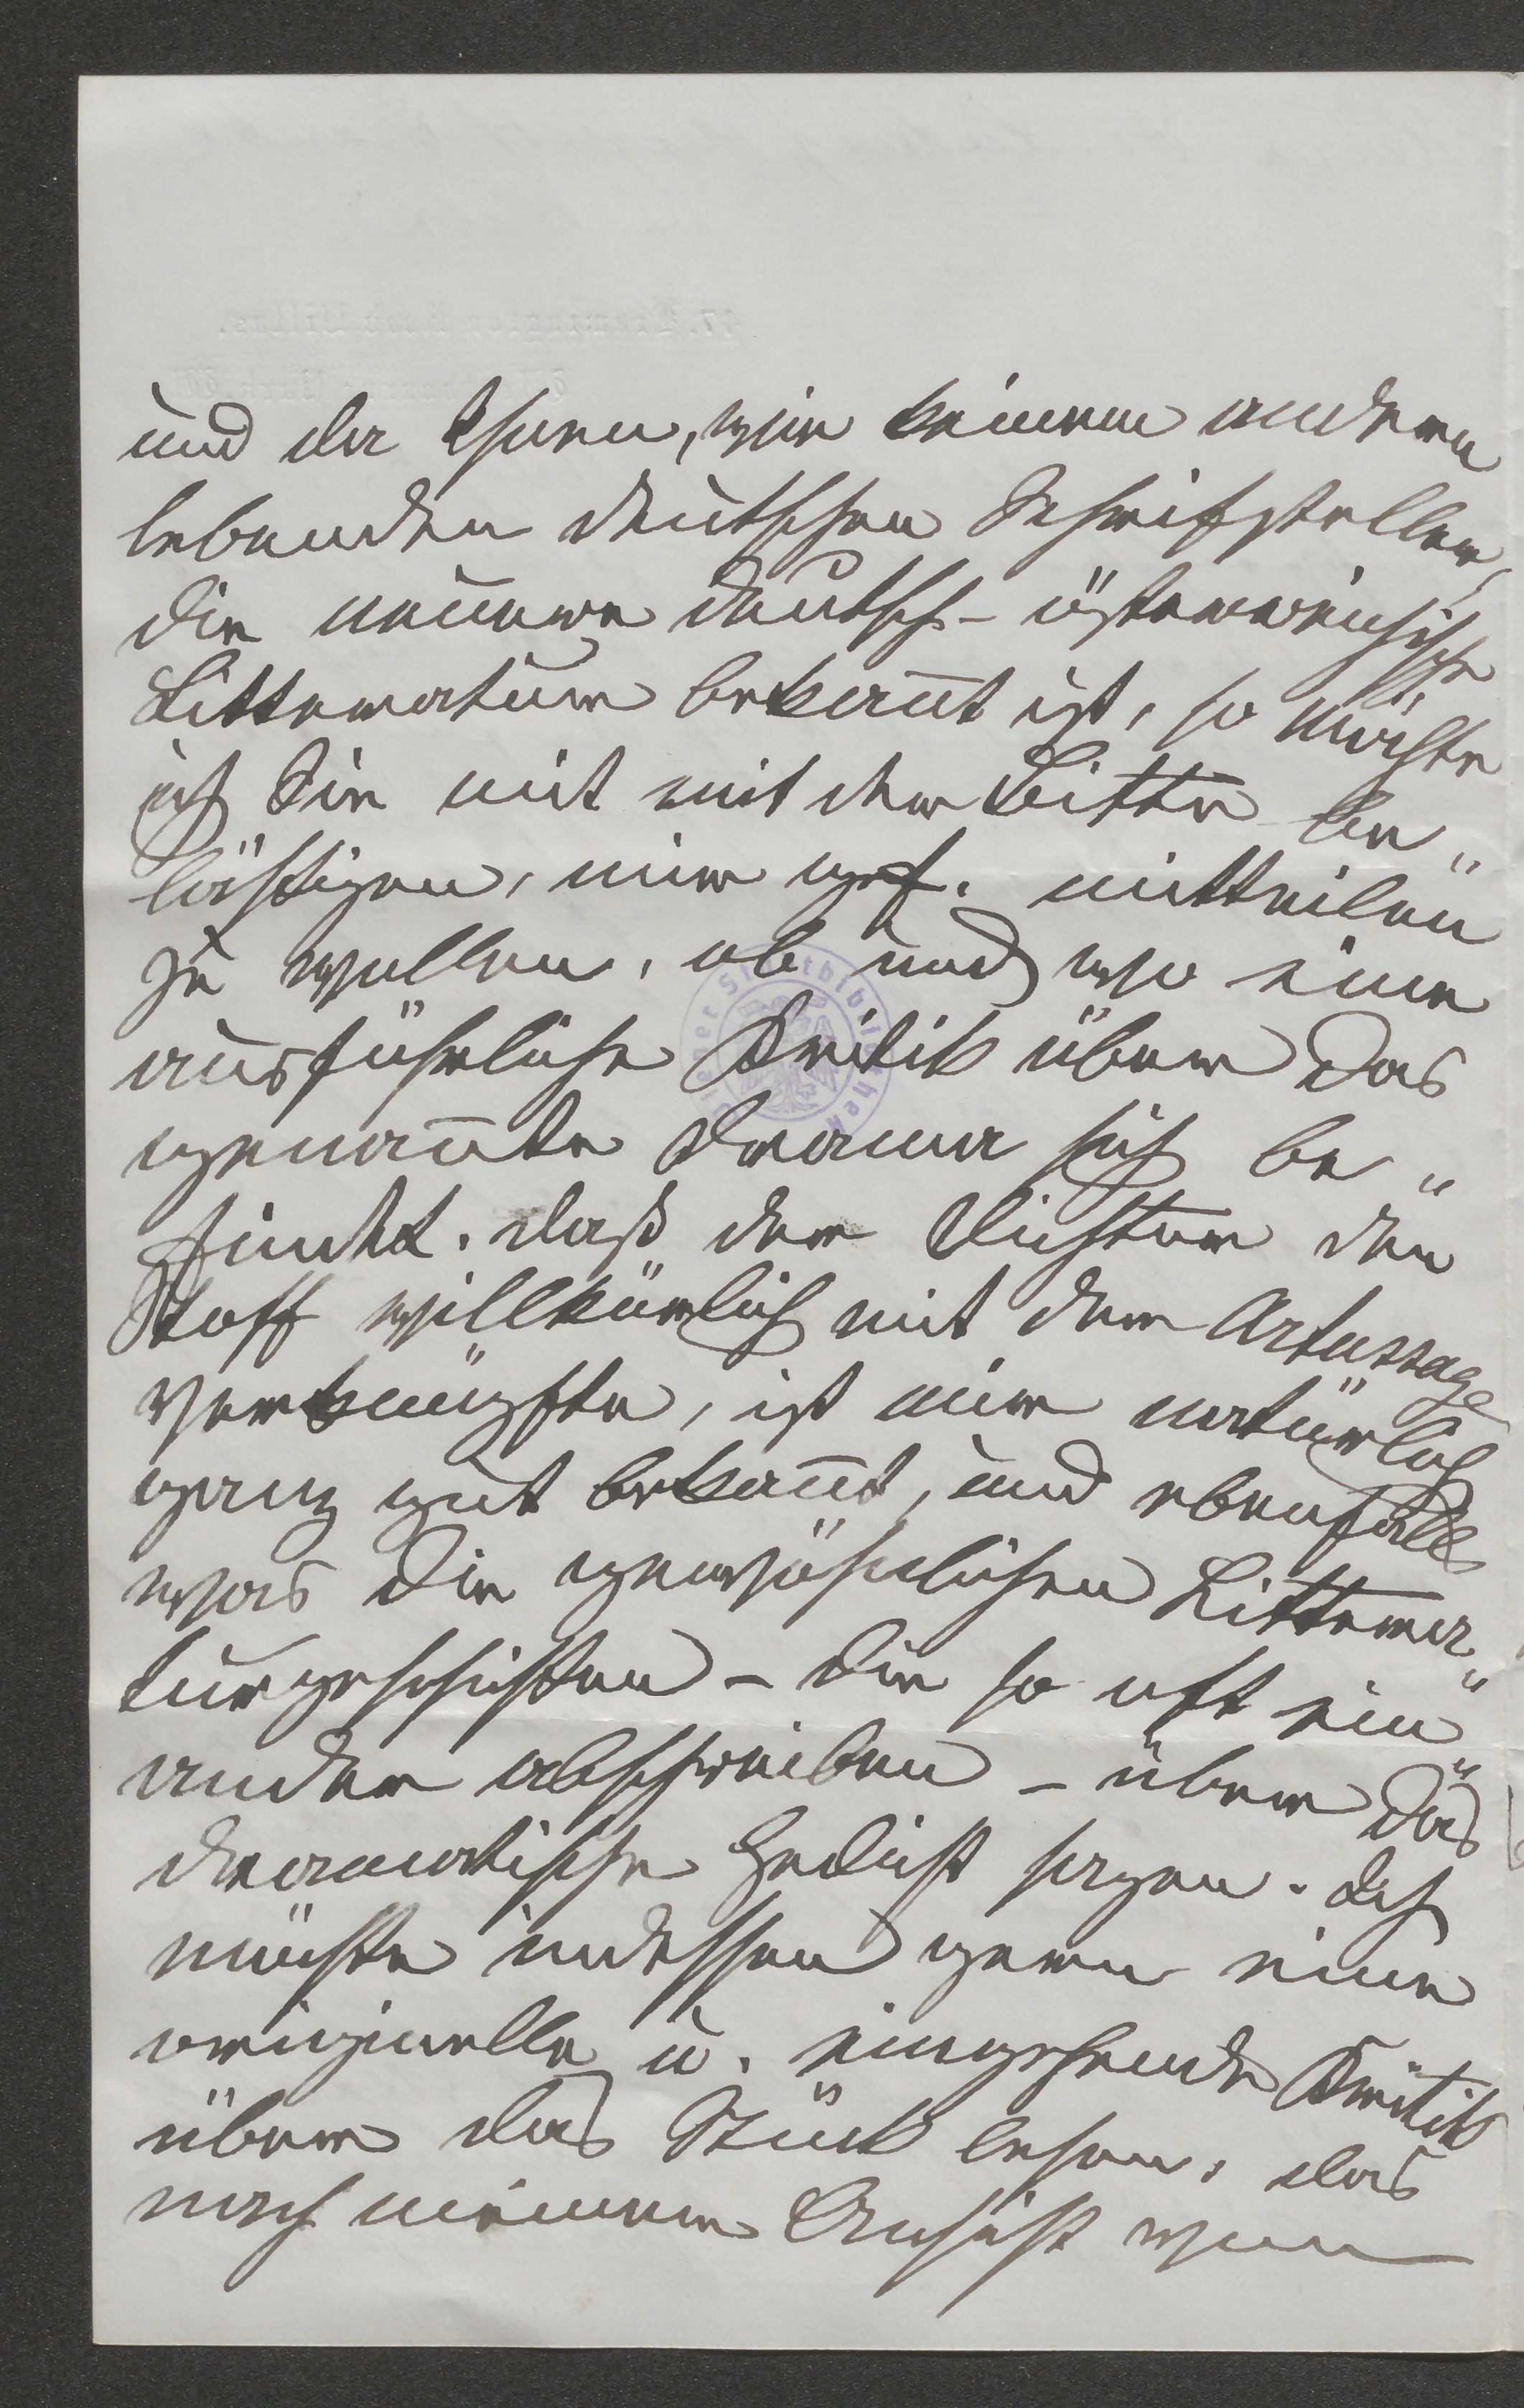 und da Ihnen, wie keinem andern
lebenden deutschen Schriftsteller,
die neuere deutsch-österreichische
Litteratur bekañt ist, so möchte
ich Sie mit mit der Bitte be„
lästigen, mir gef. mitteilen
zu wollen, ob und wo eine
ausführliche Kritik über das
genañte Drama sich be„
findet. Daß der Dichter den
Stoff willkürlich mit der Artussage
verknüpfte, ist mir natürlich
ganz gut bekañt, und ebenfalls
was die gewöhnlichen Littera„
turgeschichten – die so oft ein„
ander abschreiben – über das
dramatische Gedicht sagen. Ich
möchte indessen gern eine
originelle u. eingehende Kritik
über das Stück lesen, das
nach meiner Ansicht von